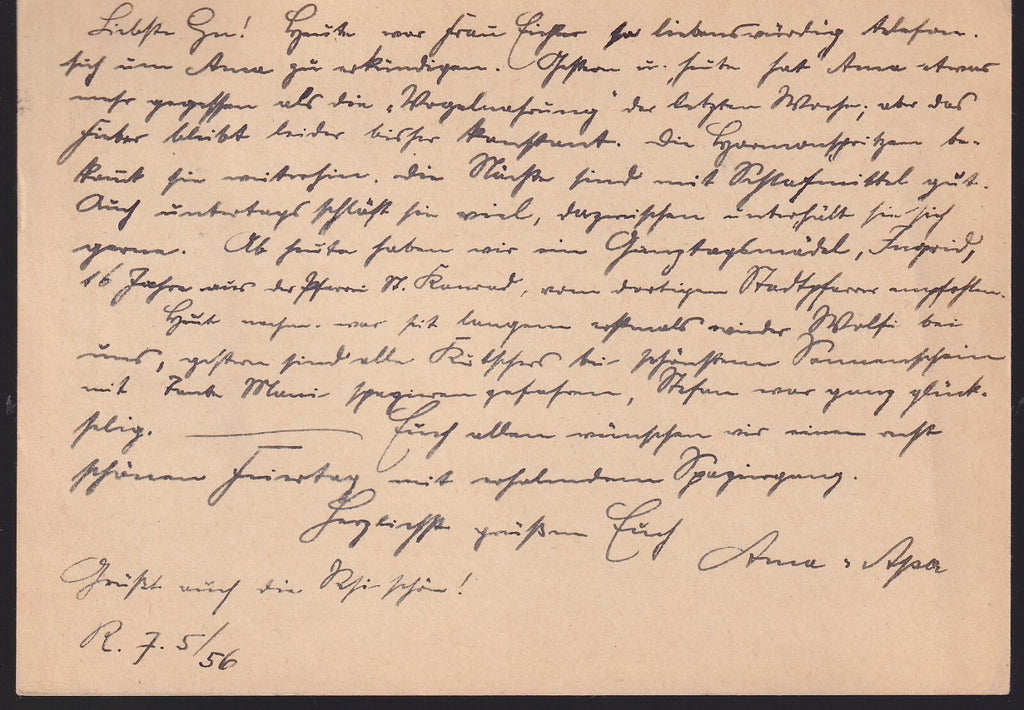 Liebste Gu! Heute war Frau Eichler so liebenswürdig telefon.
sich um Ama zu erkundigen. Gestern u. heute hat Ama etwas
mehr gegessen als die „Vogelnahrung" der letzten Woche; aber das
Fieber bleibt leider bisher konstant. Die Hormonspritzen be-
kommt sie weiterhin. Die Nächte sind mit Schlafmittel gut.
Auch untertags schläft sie viel, dazwischen unterhält sie sich
gerne. Ab heute haben wir ein Ganztagsmädel, Ingrid,
16 Jahre aus der Pfarrei St. Konrad, vom dortigen Stadtpfarrer empfohlen.
Heute nachm. war seit langem erstmals wieder Wolfi bei
uns, gestern sind alle Kutschers bei schönstem Sonnenschein
mit Tante Mani spazieren gefahren, Stefan war ganz glück-
selig. Euch allen wünschen wir einen recht
schönen Feiertag mit erholendem Spaziergang.
Herzlichst grüßen Euch
Ama + Apa
Grüßt auch die schön!
R. 7. 5/56